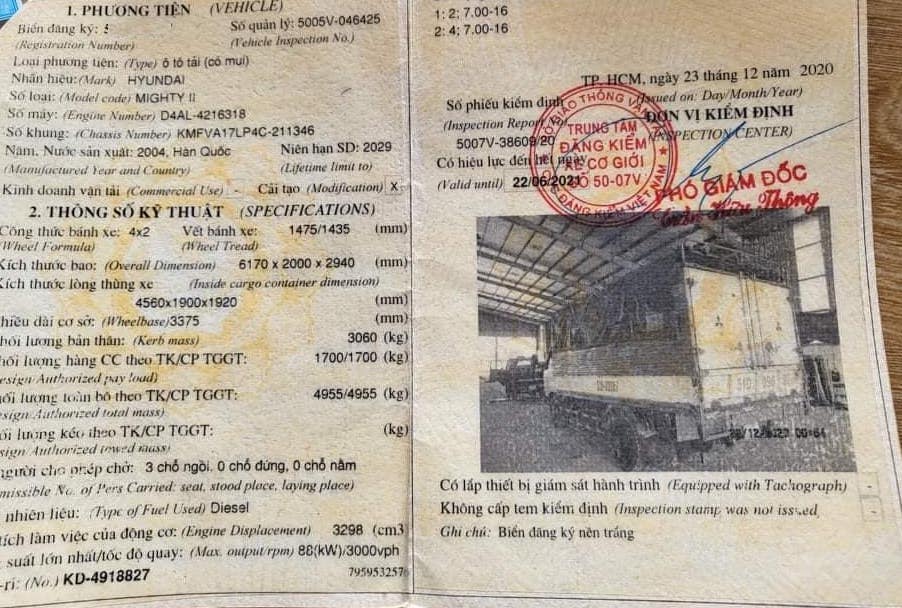 1. PHƯƠNG TIỆN (VEHICLE)
Biển đăng ký: 5
Số quản lý: 5005V-046425
(Registration Number)
(Vehicle Inspection No.)
Loại phương tiện: (Type) ô tô tải (có mui)
Nhãn hiệu: (Mark) HYUNDAI
Số loại: (Model code) MIGHTY II
Số máy: (Engine Number) D4AL-4216318
Số khung: (Chassis Number) KMFVA17LP4C-211346
Năm, Nước sản xuất: 2004, Hàn Quốc
Niên hạn SD: 2029
(Manufactured Year and Country)
(Lifetime limit to)
Kinh doanh vận tải (Commercial Use) - Cải tạo (Modification) X
2. THÔNG SỐ KỸ THUẬT (SPECIFICATIONS)
Công thức bánh xe: 4x2 Vết bánh xe: 1475/1435 (mm)
(Wheel Formula) (Wheel Tread)
Kích thước bao: (Overall Dimension) 6170 x 2000 x 2940 (mm)
Kích thước lòng thùng xe (Inside cargo container dimension)
4560x1900x1920 (mm)
hiều dài cơ sở: (Wheelbase) 3375 (mm)
hối lượng bản thân: (Kerb mass) 3060 (kg)
hối lượng hàng CC theo TK/CP TGGT: 1700/1700 (kg)
esign/Authorized pay load)
ối lượng toàn bộ theo TK/CP TGGT: 4955/4955 (kg)
sign/Authorized total mass)
ối lượng kéo theo TK/CP TGGT: (kg)
sign/Authorized towed mass)
người cho phép chở: 3 chỗ ngồi, 0 chỗ đứng, 0 chỗ nằm
missible No. of Pers Carried: seat, stood place, laying place)
nhiên liệu: (Type of Fuel Used) Diesel
tích làm việc của động cơ: (Engine Displacement) 3298 (cm3
suất lớn nhất/tốc độ quay: (Max. output/rpm) 88(kW)/3000vph
-ri: (No.) KD-4918827
795953257
1: 2; 7.00-16
2: 4; 7.00-16
TP. HCM, ngày 23 tháng 12 năm 2020
(Issued on: Day/Month/Year)
Số phiếu kiểm định
(Inspection Report No)
5007V-38609/20
ĐƠN VỊ KIỂM ĐỊNH
(INSPECTION CENTER)
Có hiệu lực đến hết ngày
(Valid until) 22/06/2021
TRUNG TÂM
ĐĂNG KIỂM
XE CƠ GIỚI
SỐ 50-07V
ĐĂNG KIỂM VIỆT NAM
PHÓ GIÁM ĐỐC
Trần Hữu Thông
Có lắp thiết bị giám sát hành trình (Equipped with Tachograph) -
Không cấp tem kiểm định (Inspection stamp was not issued) -
Ghi chú: Biển đăng ký nền trắng